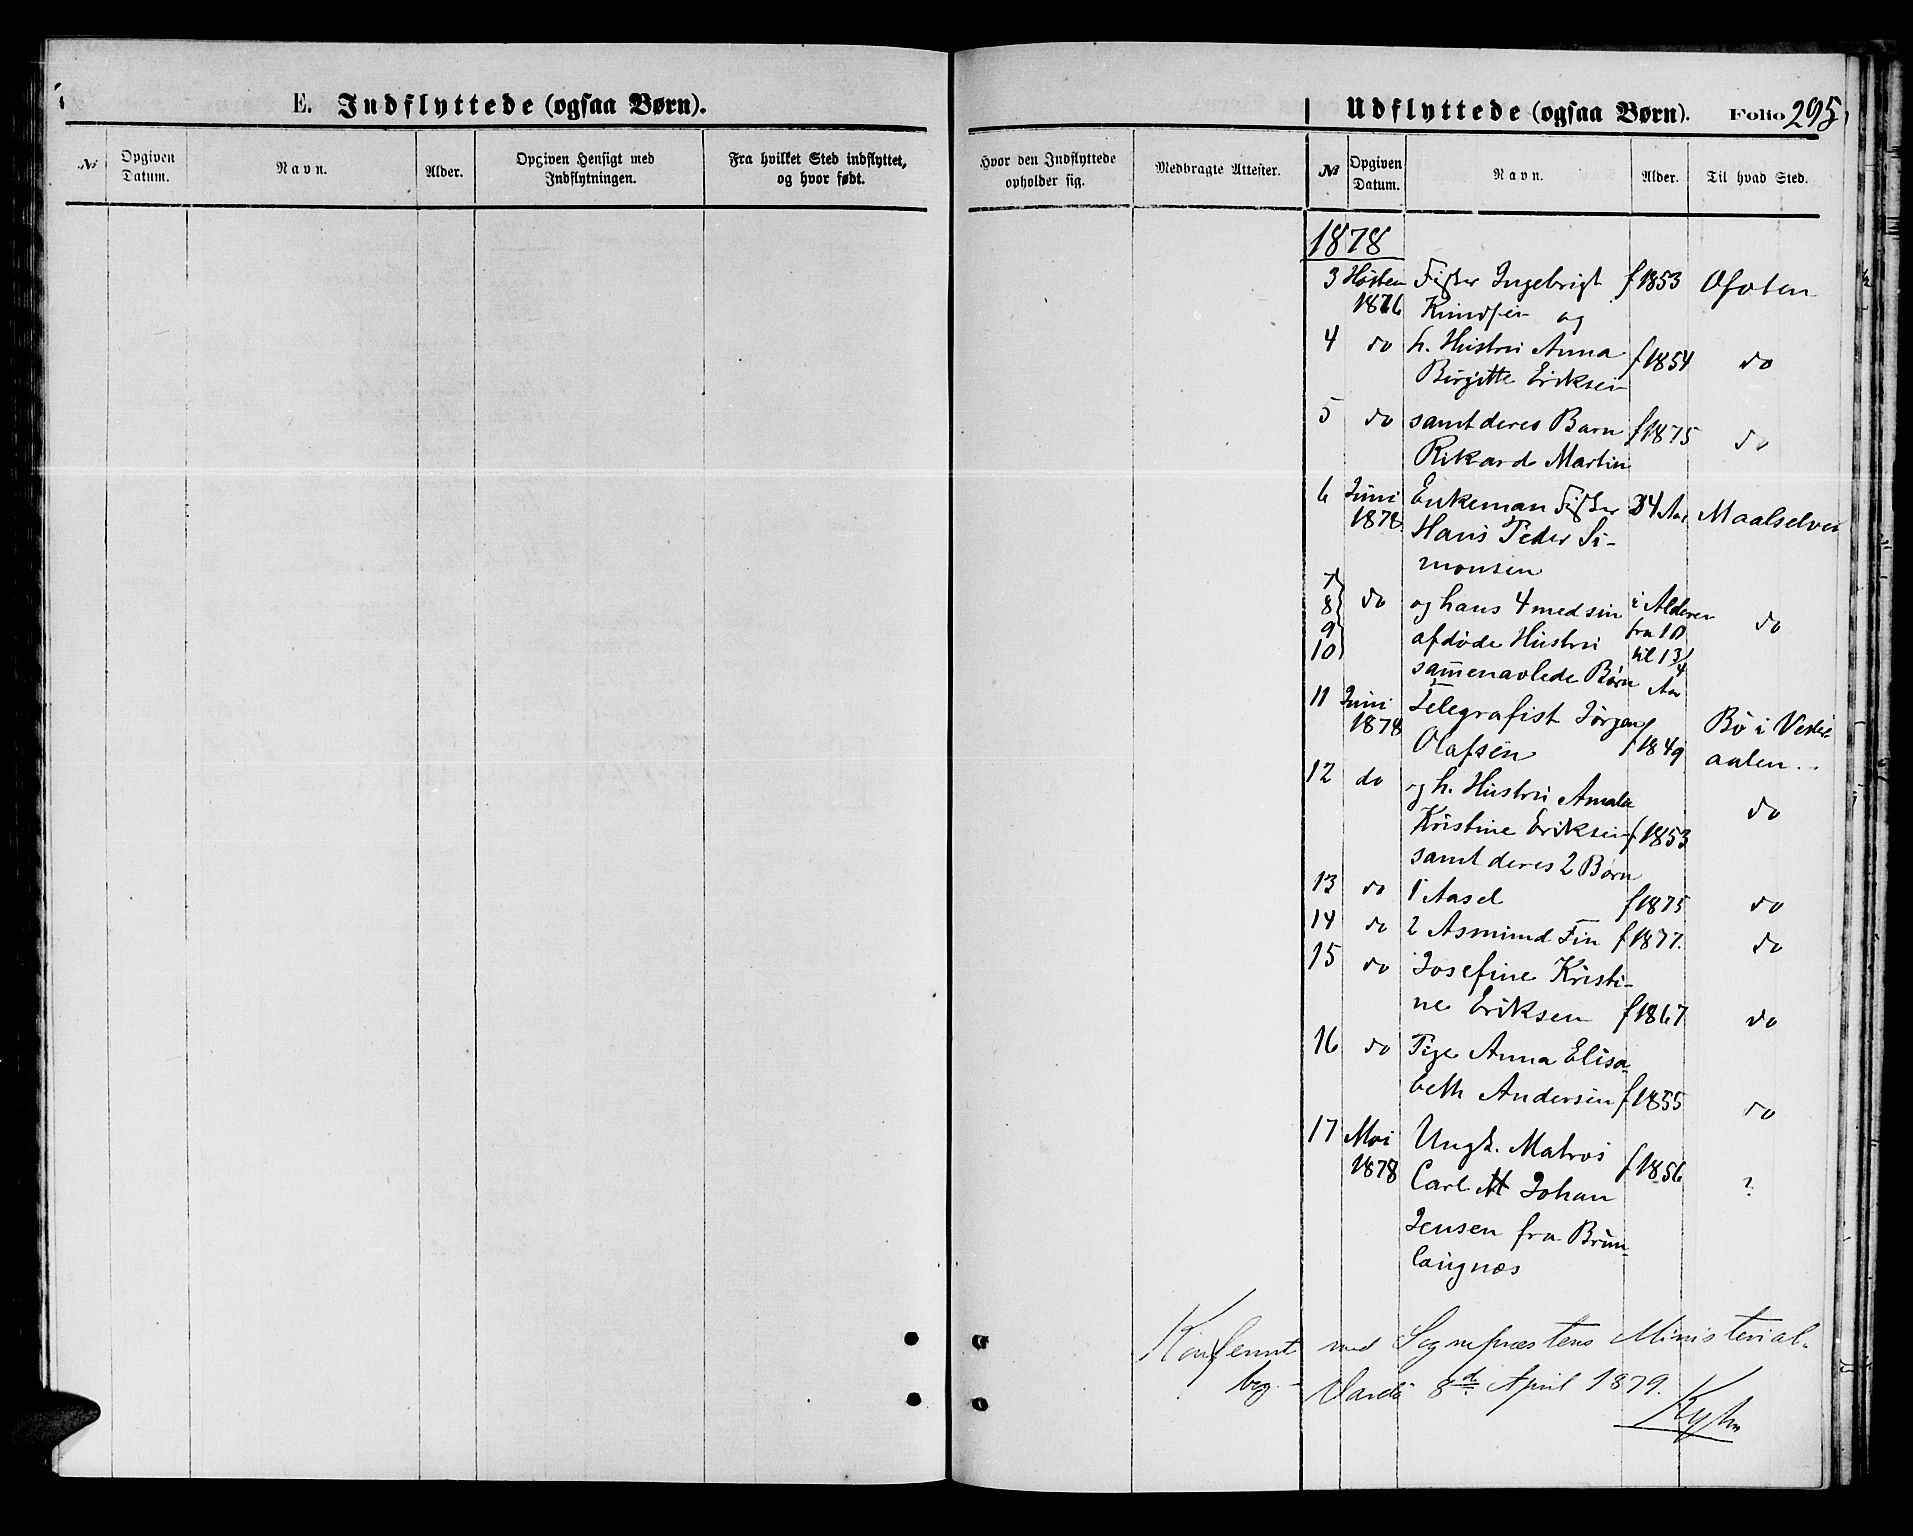 E. Indflyttede (ogsaa Børn).
№ Opgiven Datum. Navn. Alder. Opgiven Hensigt med Indflytningen. Fra hvilket Sted indflyttet, og hvor født.
Hvor den Indflyttede opholder sig. Medbragte Attester.
Udflyttede (ogsaa Børn). Folio 295
№ Opgiven Datum. Navn. Alder. Til hvad Sted.
1878
3 Høsten Fisker Ingebrigt f 1853 Ofoten
1876 og
4 do h. Hustru Anna f 1854 do
Birgitte Eriksen
5 do samt deres Barn f 1875 do
Rikard Martin
6 Juni Enkeman Fisker 34 Aar Maalselven
1878 Hans Peder Si-
monsen
7
8 do og hans 4 med sin i Alderen do
9 afdøde Hustru fra 10
10 sammenavlede Børn til 1 3/4 Aar
11 Juni Telegrafist Jørgen Bø i Vester-
1878 Olafsen f 1849 aalen.
12 do og h. Hustru Amalia do
Kristine Eriksen f 1853
samt deres 2 Børn
13 do 1 Aasel f 1875 do
14 do 2 Asmund Fin f 1877. do
15 do Josefine Kristi-
ne Eriksen f 1867 do
16 do Pige Anna Elisa-
beth Andersen f 1855 do
17 Mai Ungk. Matros
1878 Carl Johan f 1856 ?
Jensen fra Brun-
laugnæs
Konferert med Sognepræstens Ministerial-
bog. - Vardø 8d. April 1879.